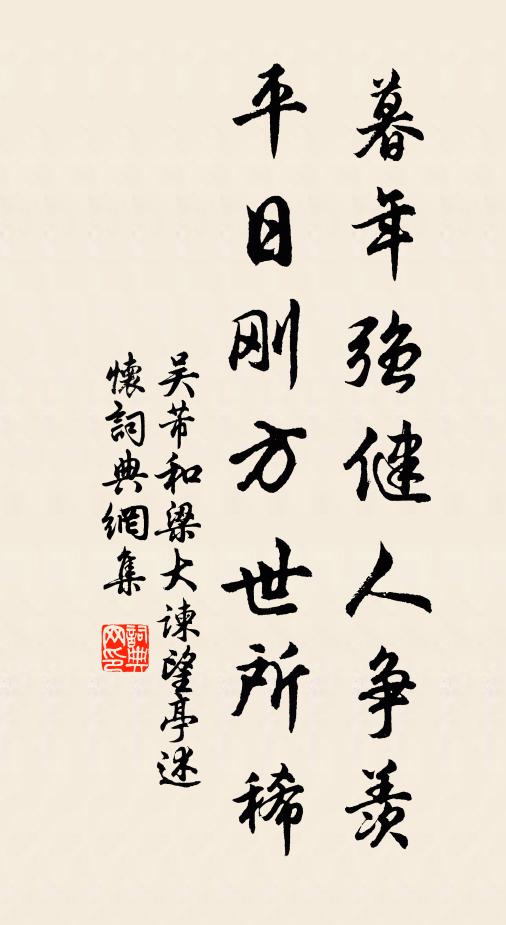 暮年强健人争羨
平日刚方世所稀
吴芾和梁大諫望亭述
懷詞典網集
詞典
网印